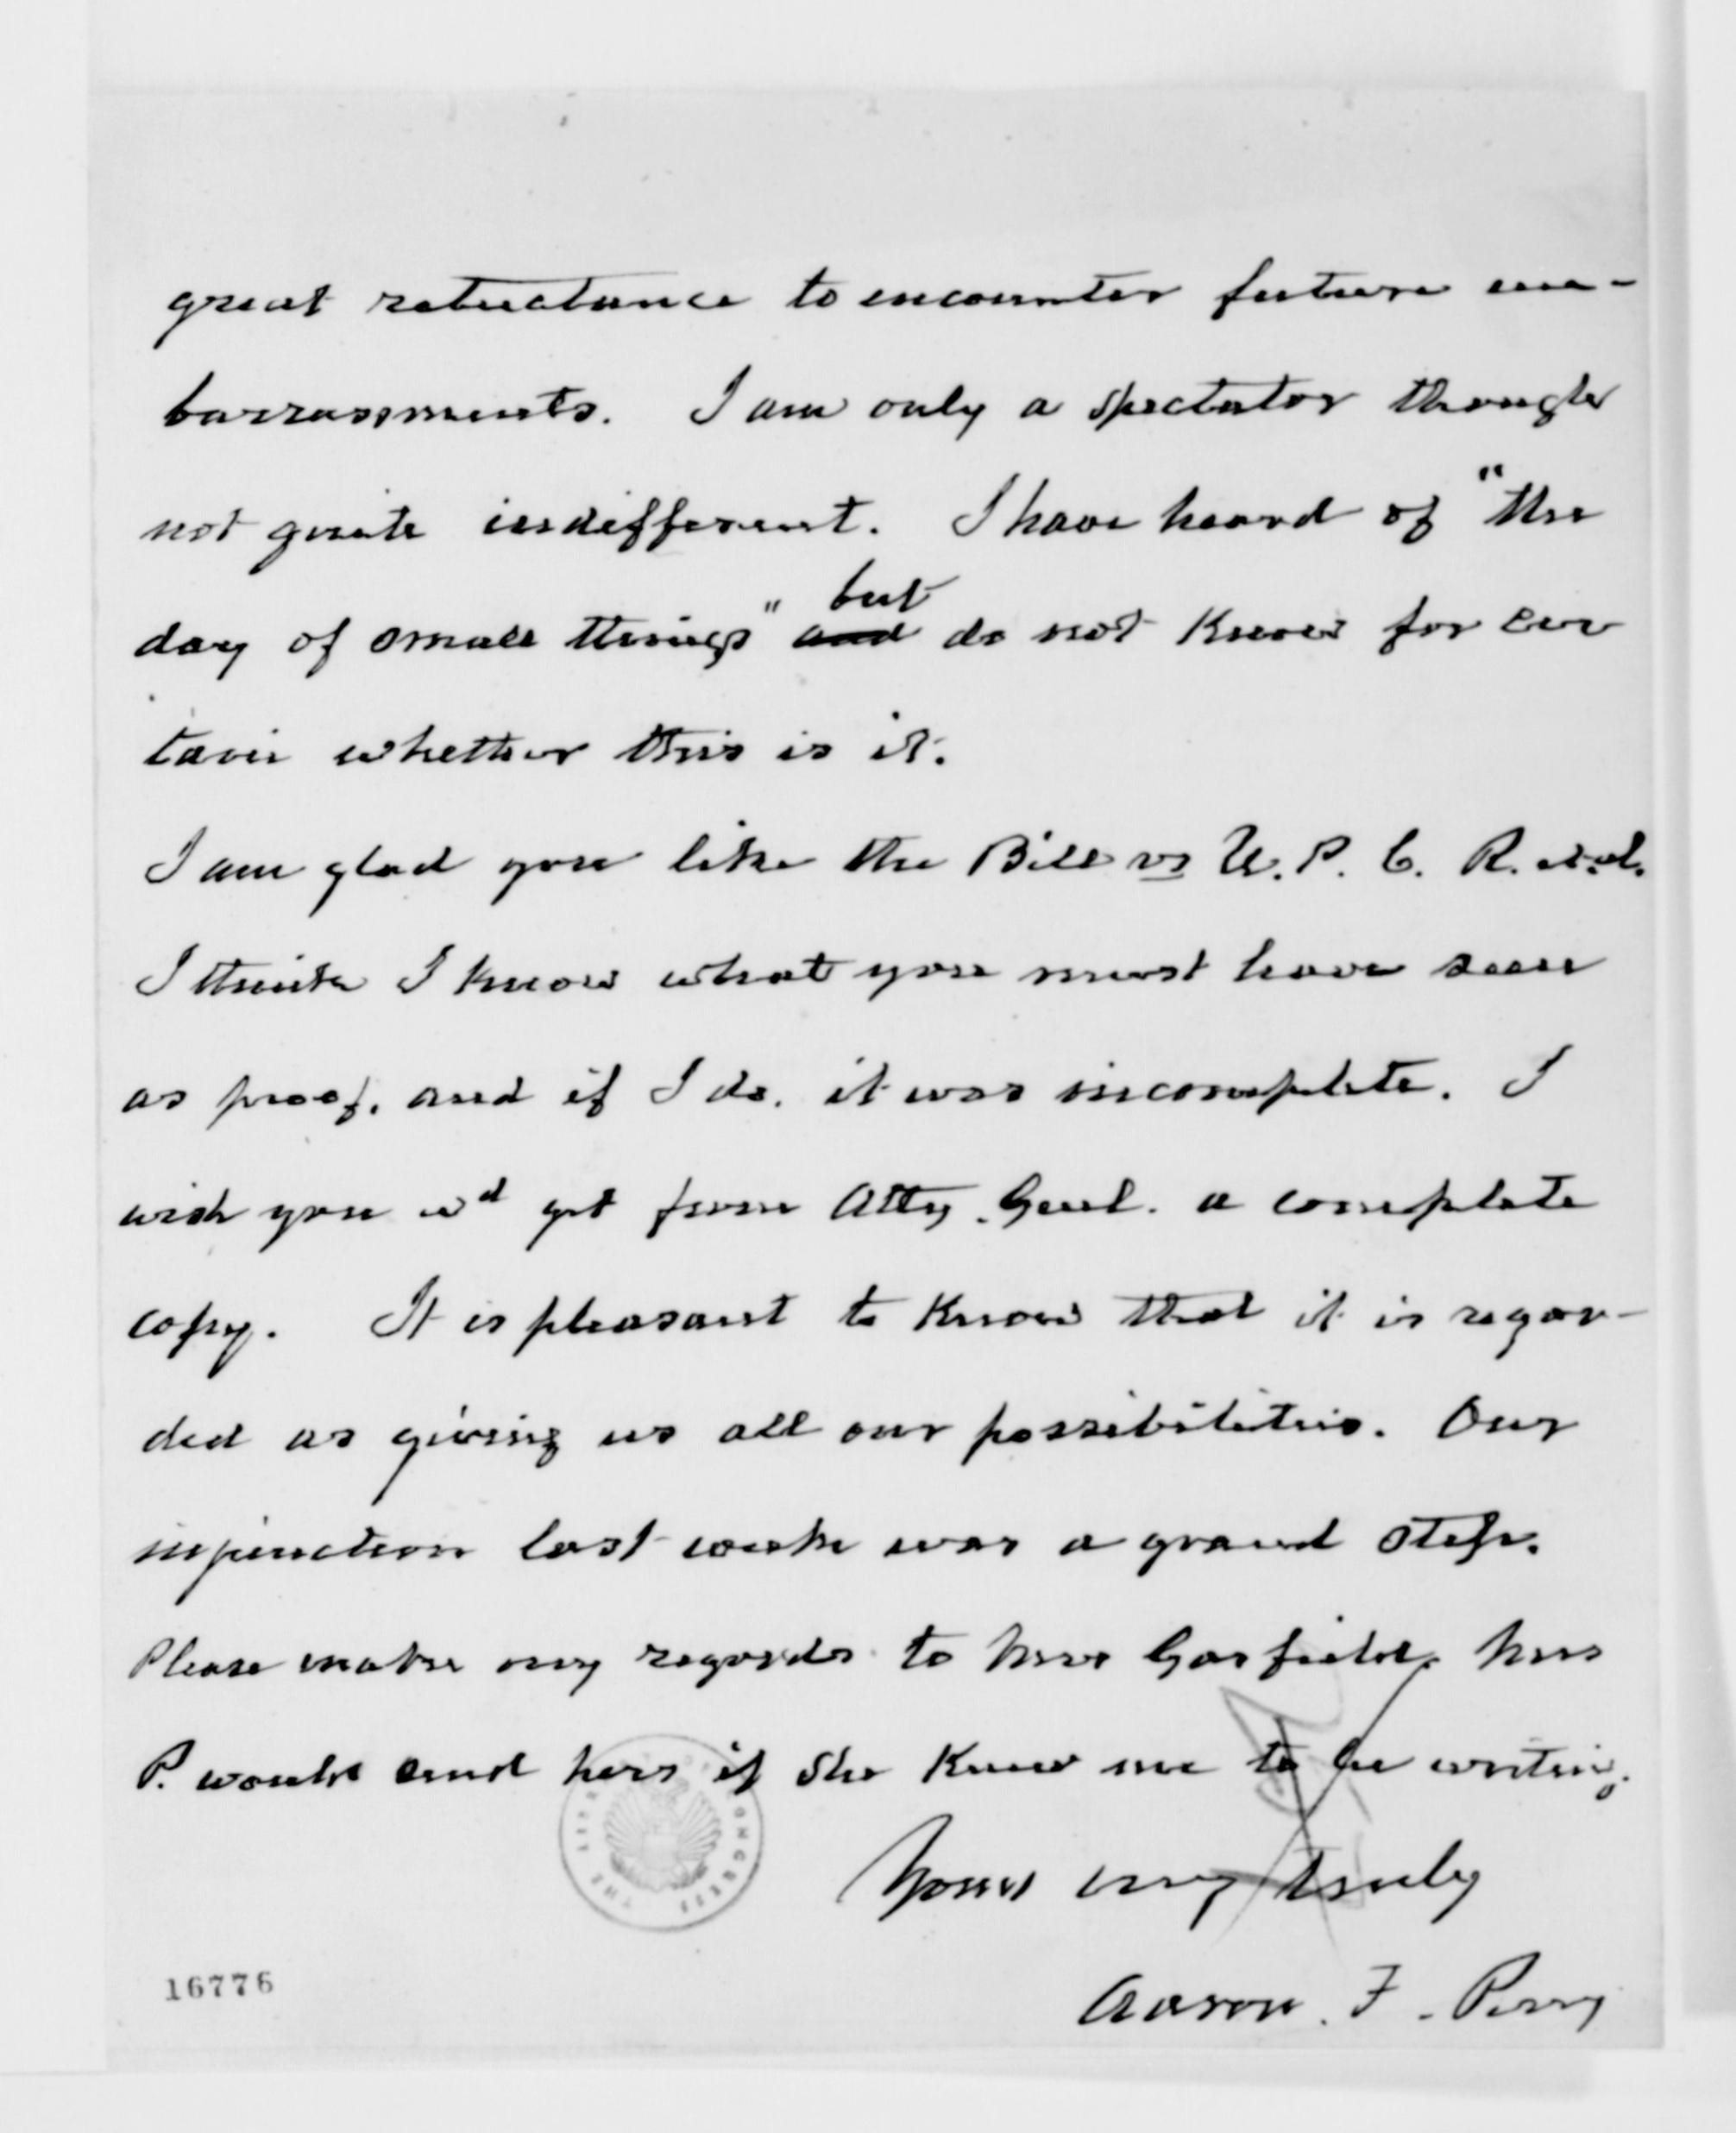 great reluctance to encounter future em-
barrassments. I am only a spectator though
not quite indifferent. I have heard of "the
day of small things" but
and do not know for cer
tain whether this is it.
I am glad you like the Bill vs U. P. C. R. et al.
I think I know what you must have seen
as proof, and if I do, it was incomplete. I
wish you wd get from Atty. Genl. a complete
copy. It is pleasant to know that it is regar-
ded as giving us all our possibilities. Our
injunction last week was a grand step.
Please make my regards to Mrs Garfield. Mrs
P. would send hers if she knew me to be writing.
Yours very truly
Aaron. F. Perry
THE LIBRARY OF CONGRESS
16776